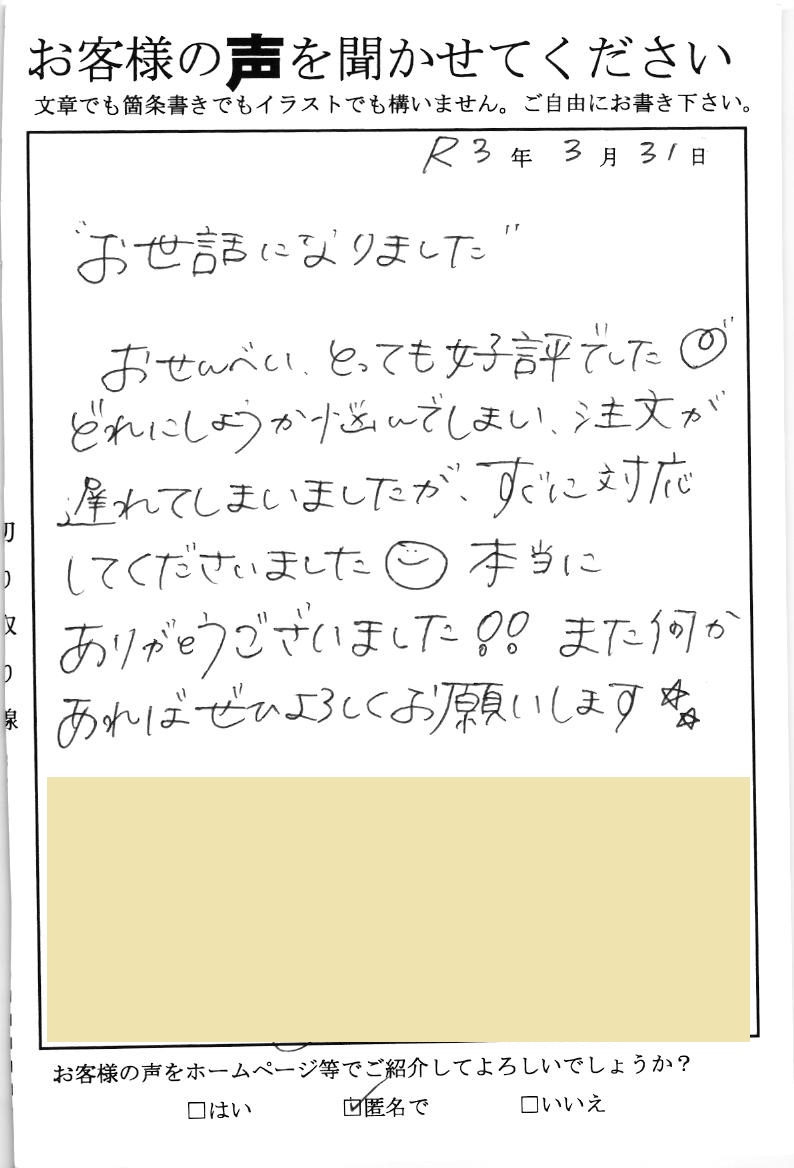 お客様の声を聞かせてください
文章でも箇条書きでもイラストでも構いません。ご自由にお書き下さい。
R3年 3月31日
"お世話になりました"
おせんべい、とっても好評でした
どれにしようか悩んでしまい、注文が
遅れてしまいましたが、すぐに対応
してくださいました 本当に
ありがとうございました!! また何か
あればぜひよろしくお願いします
切り取り線
お客様の声をホームページ等でご紹介してよろしいでしょうか?
□はい ☑匿名で □いいえ